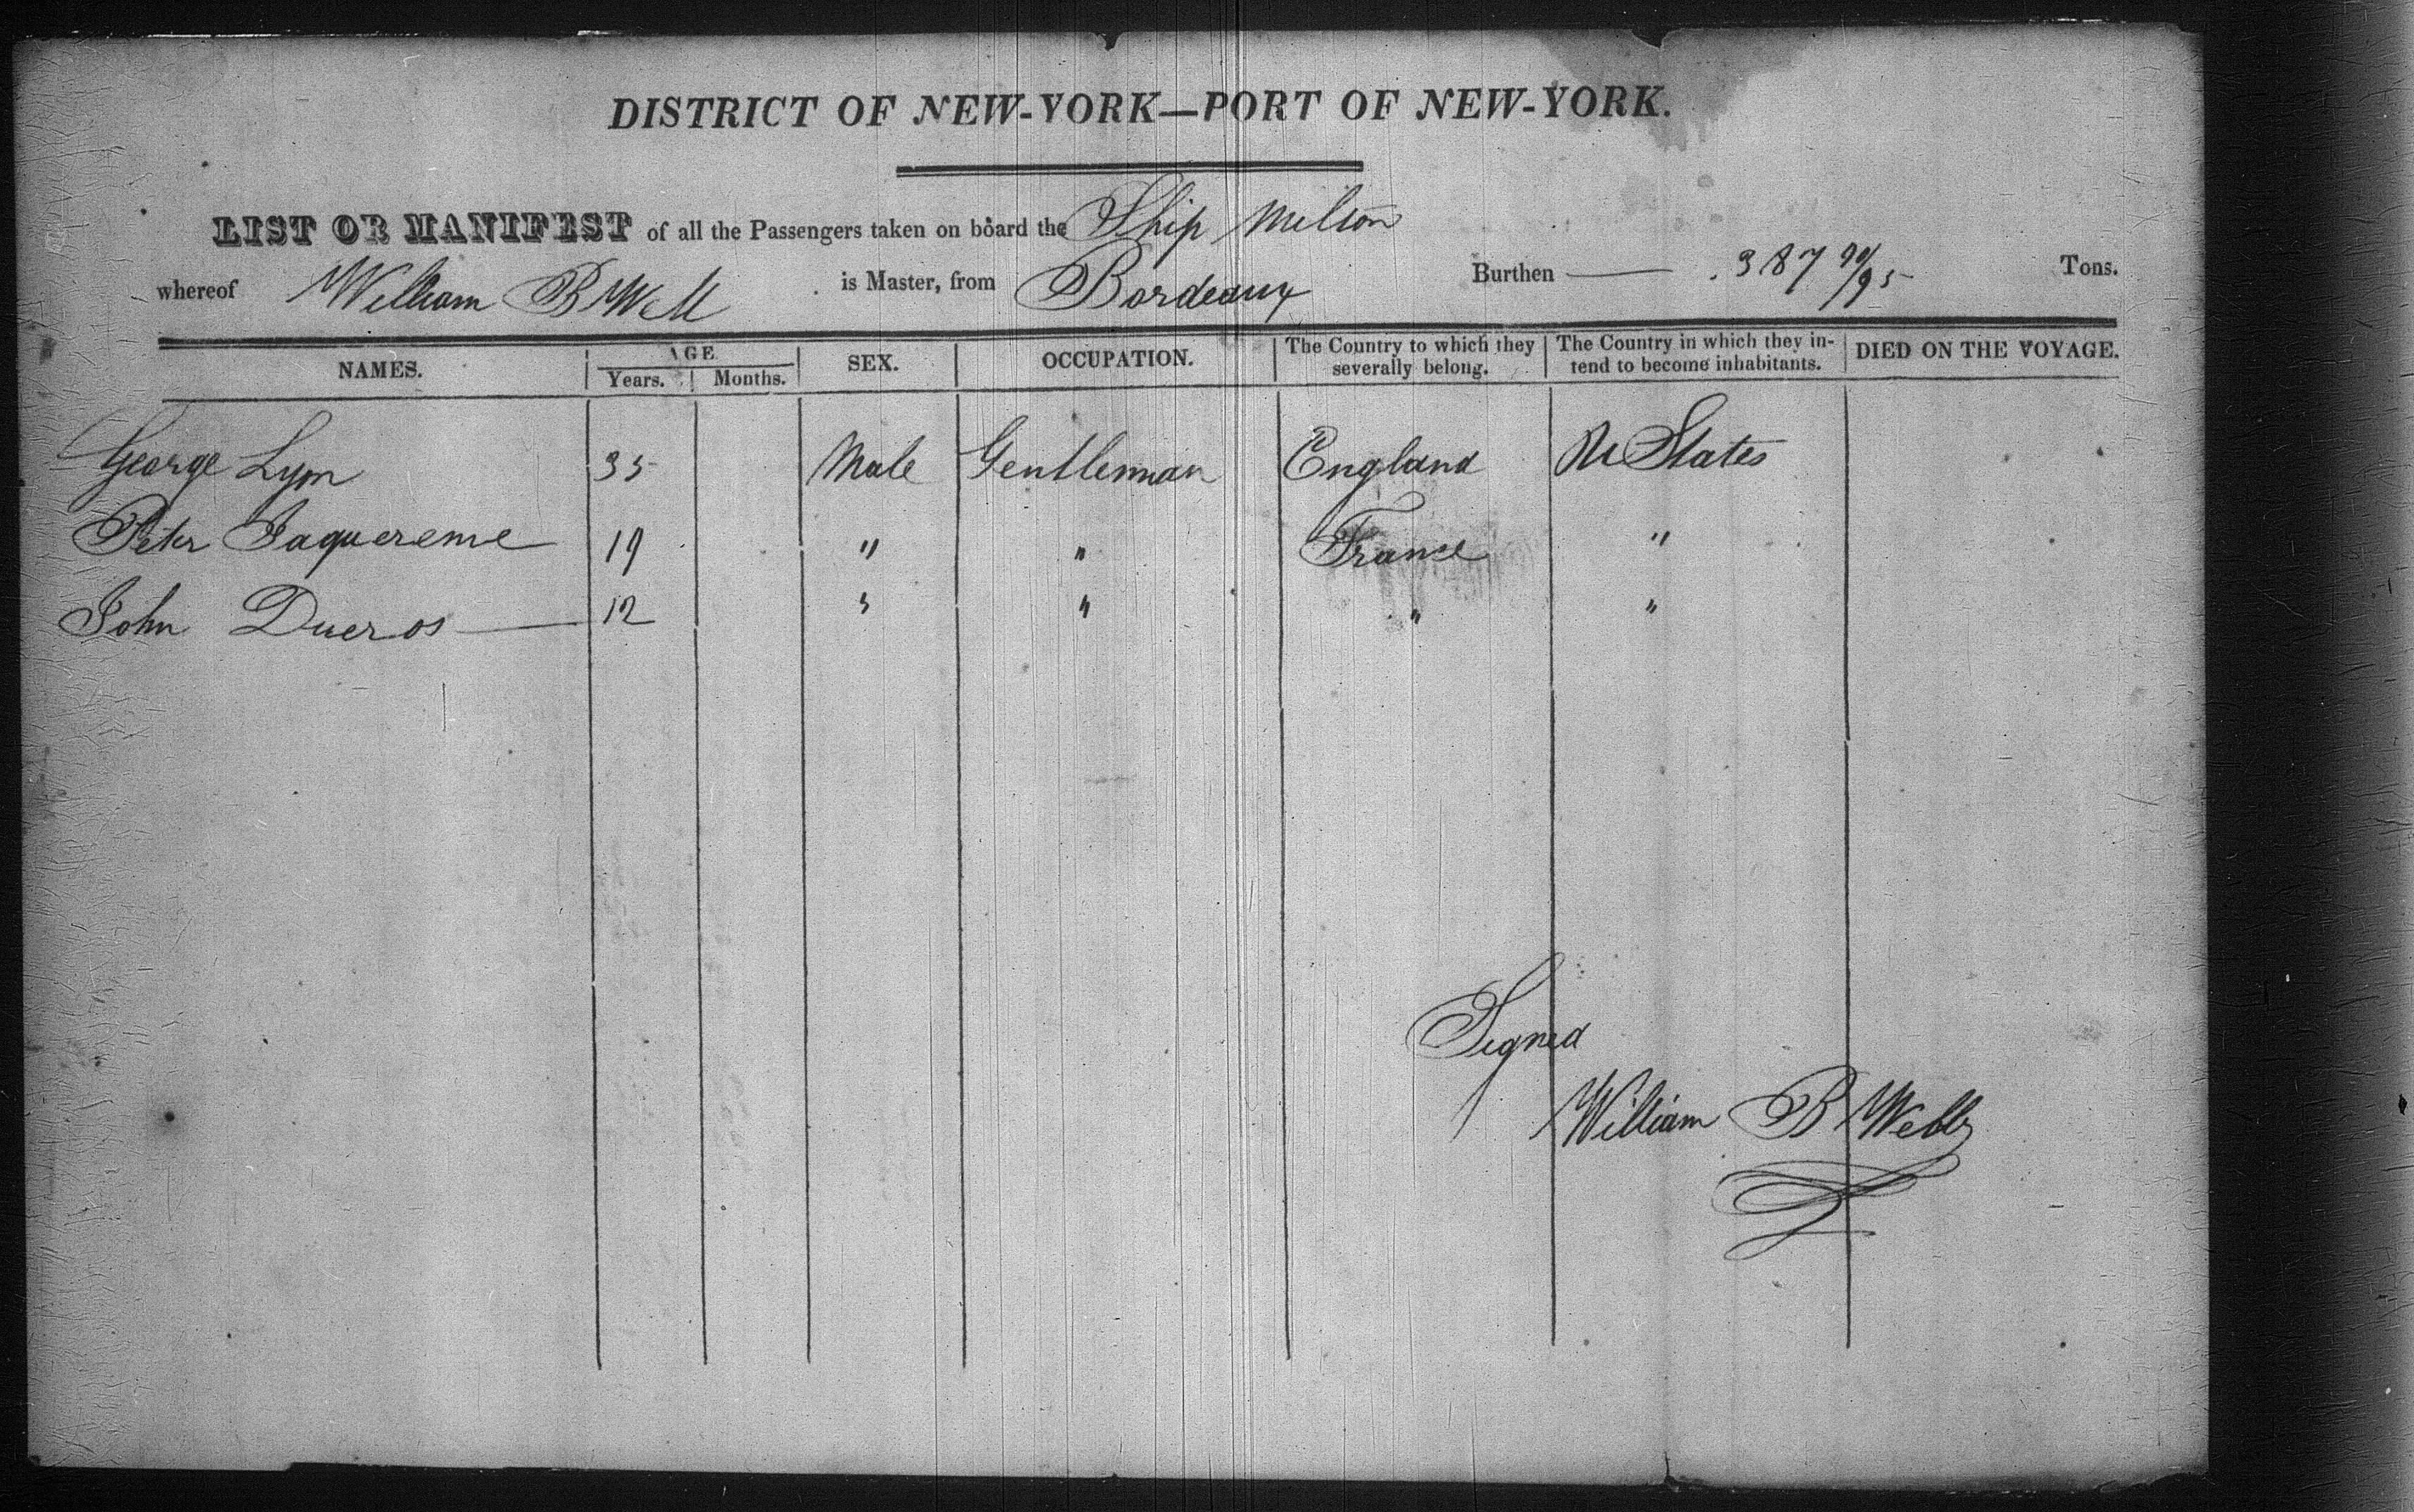 DISTRICT OF NEW-YORK—PORT OF NEW-YORK.
LIST OR MANIFEST of all the Passengers taken on board the Ship Milton
whereof William B Webb is Master, from Bordeaux Burthen — 387 90/95 Tons.
NAMES. AGE. Years. Months. SEX. OCCUPATION. The Country to which they severally belong. The Country in which they intend to become inhabitants. DIED ON THE VOYAGE.
George Lyon 35 Male Gentleman England U States
Peter 19 " " France "
John Dueros 12 " " " "
Signed
William B Webb